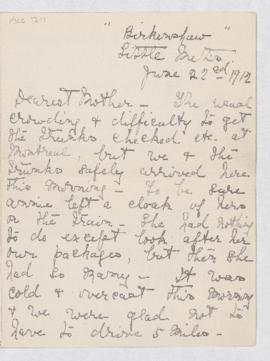 Acc 1211
"Birkenshaw"
Little Metis
June 22nd 1912
Dearest Mother - The usual
crowding & difficulty to get
the trunks checked etc. at
Montreal, but we & the
trunks safely arrived here
this morning - To be sure
Annie left a cloak of hers
on the train - She had nothing
to do except look after her
own packages, but then she
had so many - It was
cold & overcast this morning
& we were glad not to
have to drive 5 miles -